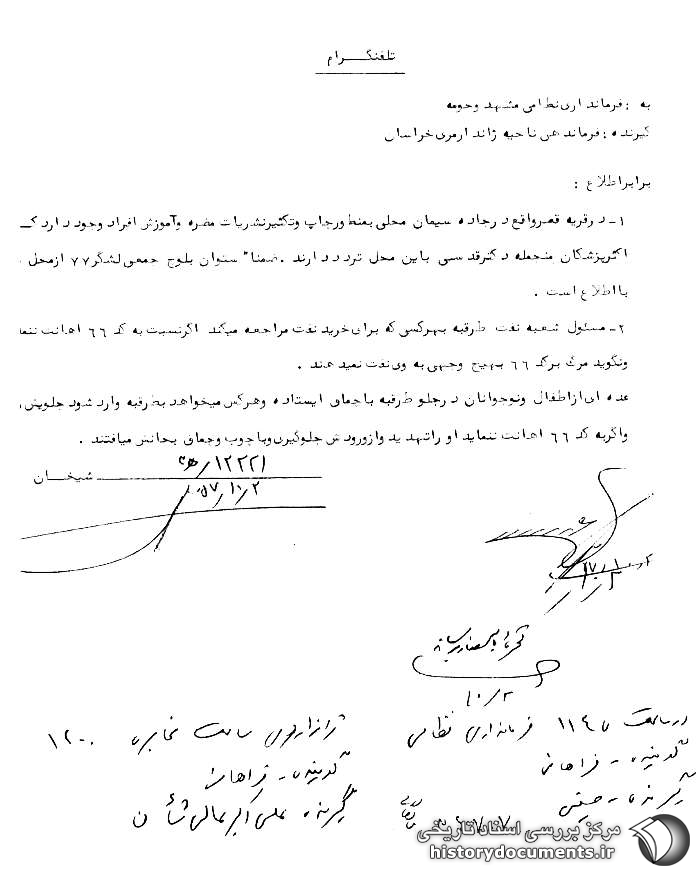 تلفنگرام
به : فرمانداری نظامی مشهد وحومه
گیرنده : فرماندهی ناحیه ژاندارمری خراسان
برابر اطلاع :
۱- در قریه قصر واقع در جاده سیمان محلی بمنظور چاپ وتکثیر نشریات مضره وآموزش افراد وجود دارد کـ
اکثر پزشکان منجمله دکتر قدسی باین محل تردد دارند . ضمنا" ستوان بلوچ جمعی لشگر ۷۷ از محل
با اطلاع است .
۲- مسئول شعبه نفت طرقبه بهرکسی که برای خرید نفت مراجعه میکند اگر نسبت به کد ۶۶ اهانت ننما
ونگوید مرگ بر کد ۶۶ بهیچ وجهی به وی نفت نمیدهند .
عده ای از اطفال ونوجوانان در جلو طرقبه با چماق ایستاده وهرکس میخواهد بطرقبه وارد شود جلویش
واگر به کد ۶۶ اهانت ننماید او را تهدید واز ورودش جلوگیری وبا چوب وچماق بجانش میافتند .
۱۲۲۲۱/
شیخان
۵۷/۱۰/۲
۱۰/۲
در ساعت ۱۱۴۵ فرمانداری نظامی
گوینده - فراهانی
گیرنده - حسینی
ژاندارمری ساعت مخابره ۱۲۰۰
گوینده - فراهانی
گیرنده علی اکبر عالی شأن
مرکز بررسی اسناد تاریخی
historydocuments.ir